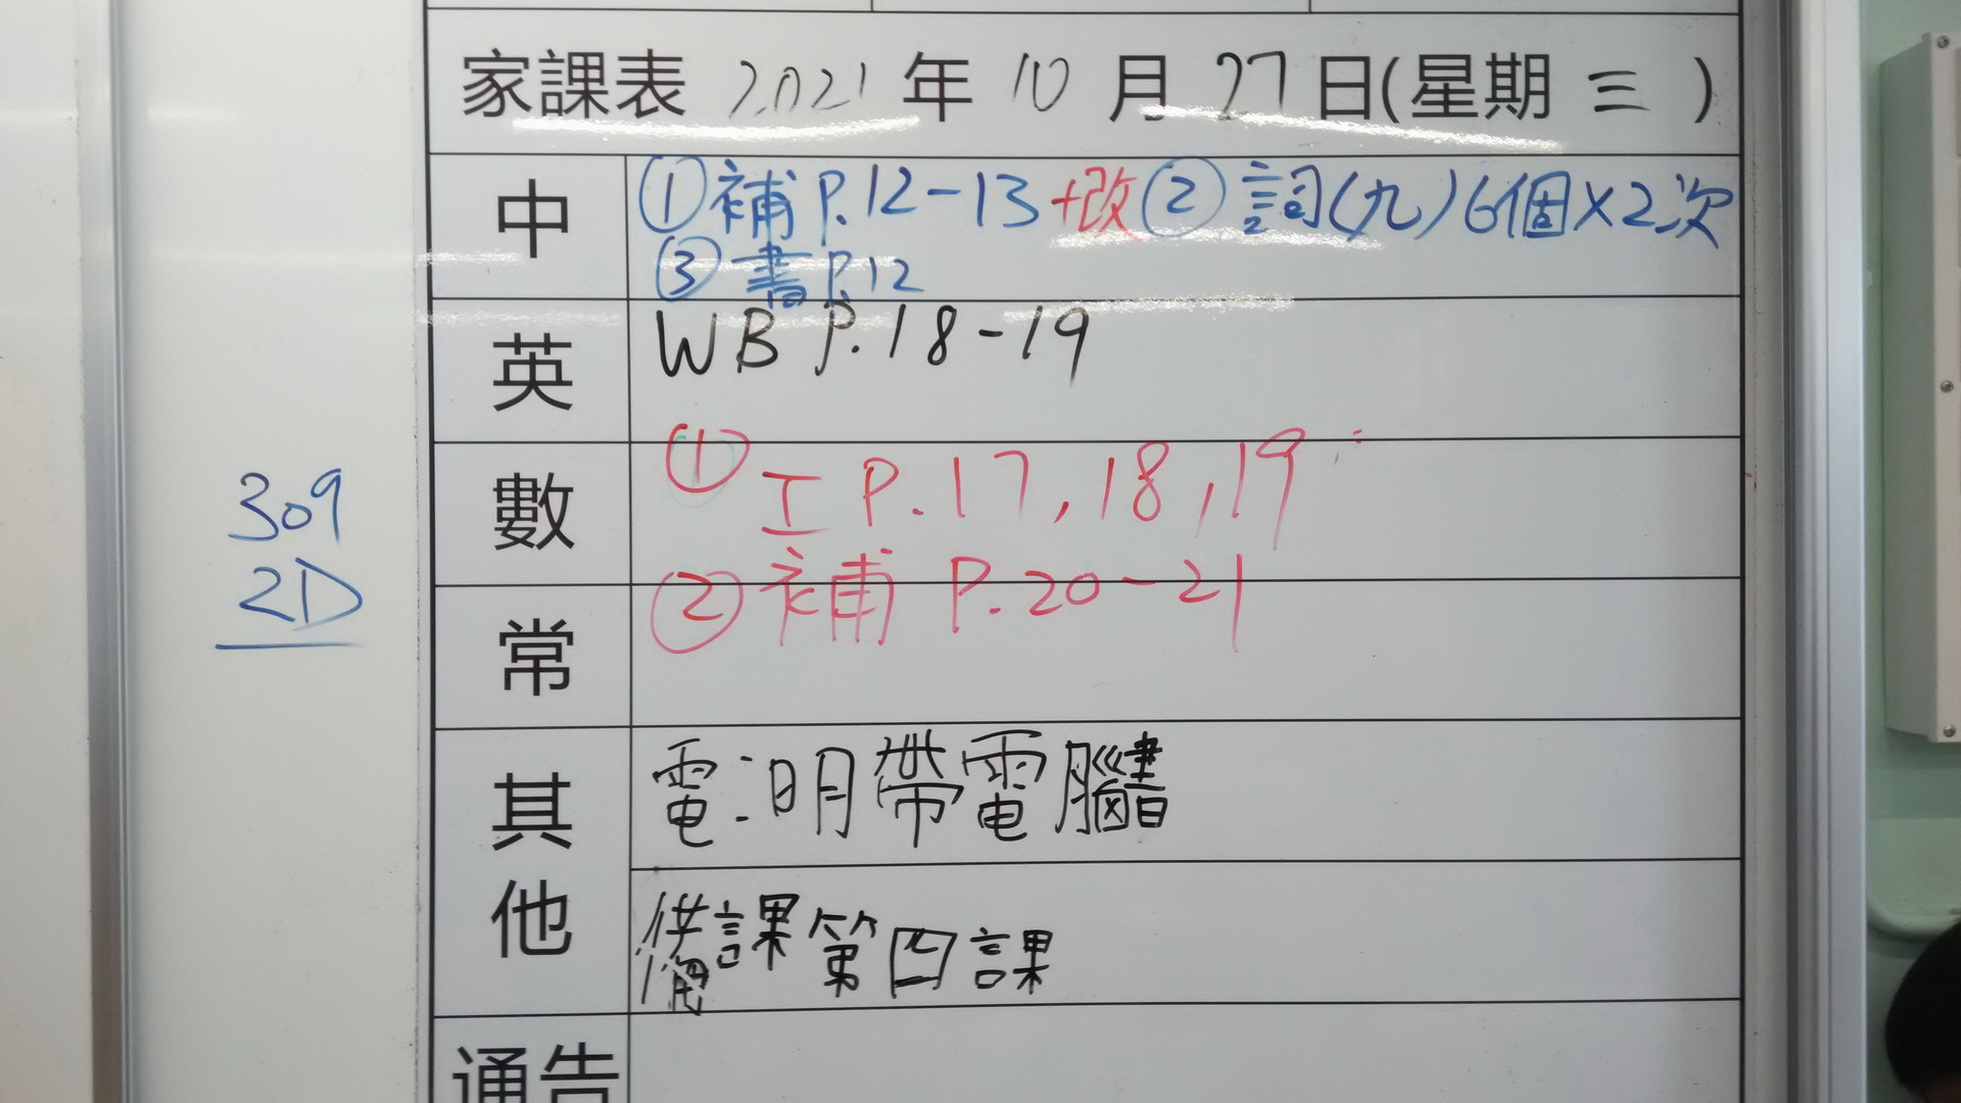 家課表 2021 年 10 月 27 日(星期 三 )
中 ①補 P.12-13 +改 ② 詞(九) 6個×2次
③ 書 P.12
英 WB P.18-19
數 ① 工 P.17,18,19
② 補 P.20-21
常
其他 電:明帶電腦書
備課第四課
通告
309
2D